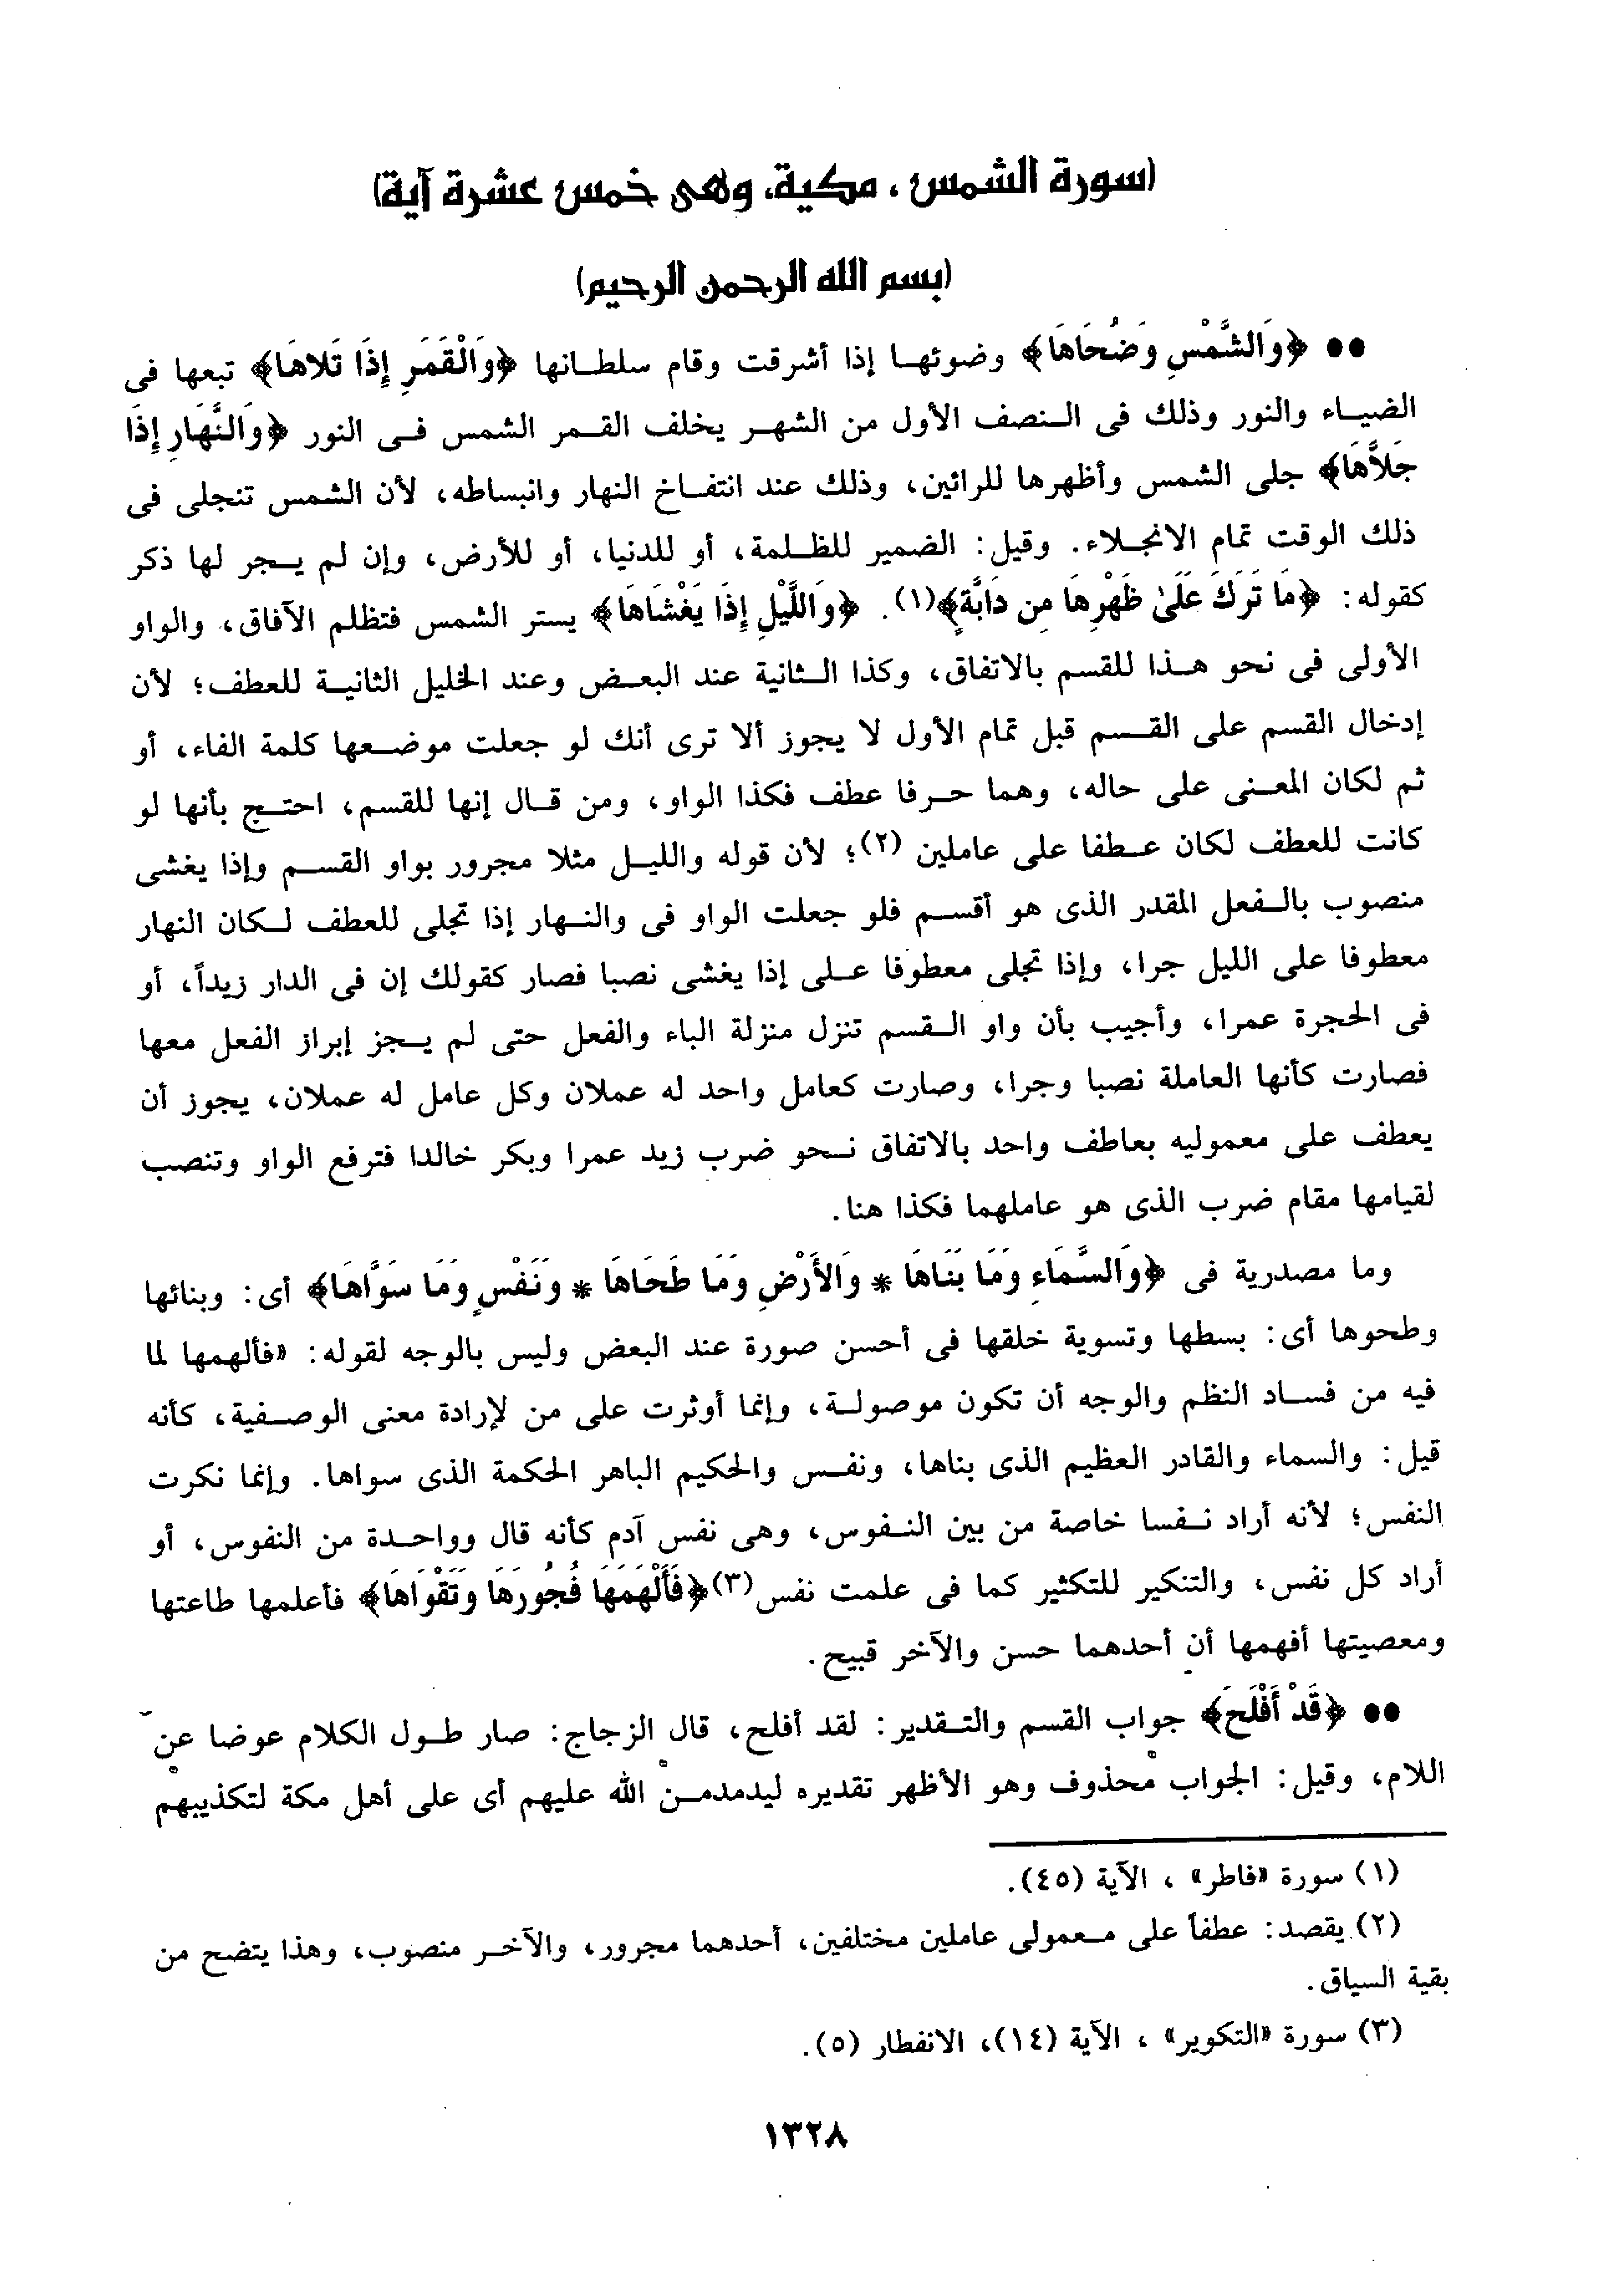 (سورة الشمس ، مكية، وهى خمس عشرة آية)
(بسم الله الرحمن الرحيم)
●● ﴿وَالشَّمْسِ وَضُحَاهَا﴾ وضوئهـا إذا أشرقت وقام سلطـانها ﴿وَالْقَمَرِ إِذَا تَلاهَا﴾ تبعها فى
الضيـاء والنور وذلك فى الـنصف الأول من الشهـر يخلف القـمر الشمس فـى النور ﴿وَالنَّهَارِ إِذَا
جَلاَّهَا﴾ جلى الشمس وأظهرها للرائين، وذلك عند انتفـاخ النهار وانبساطه، لأن الشمس تنجلى فى
ذلك الوقت تمام الانجـلاء. وقيل: الضمير للظـلمة، أو للدنيا، أو للأرض، وإن لم يـجر لها ذكر
كقوله: ﴿مَا تَرَكَ عَلَىٰ ظَهْرِهَا مِن دَابَّةٍ﴾(١). ﴿وَاللَّيْلِ إِذَا يَغْشَاهَا﴾ يستر الشمس فتظلم الآفاق، والواو
الأولى فى نحو هـذا للقسم بالاتفاق، وكذا الـثانية عند البعـض وعند الخليل الثانيـة للعطف؛ لأن
إدخال القسم على القـسم قبل تمام الأول لا يجوز ألا ترى أنك لو جعلت موضـعها كلمة الفاء، أو
ثم لكان المعـنى على حاله، وهما حـرفا عطف فكذا الواو، ومن قـال إنها للقسم، احتـج بأنها لو
كانت للعطف لكان عـطفا على عاملين (٢)؛ لأن قوله والليـل مثلا مجرور بواو القسـم وإذا يغشى
منصوب بالـفعل المقدر الذى هو أقسـم فلو جعلت الواو فى والنـهار إذا تجلى للعطف لـكان النهار
معطوفا على الليل جرا، وإذا تجلى معطوفا عـلى إذا يغشى نصبا فصار كقولك إن فى الدار زيداً، أو
فى الحجرة عمرا، وأجيب بأن واو الـقسم تنزل منزلة الباء والفعل حتى لم يـجز إبراز الفعل معها
فصارت كأنها العاملة نصبا وجرا، وصارت كعامل واحد له عملان وكل عامل له عملان، يجوز أن
يعطف على معموليه بعاطف واحد بالاتفاق نـحو ضرب زيد عمرا وبكر خالدا فترفع الواو وتنصب
لقيامها مقام ضرب الذى هو عاملهما فكذا هنا.
وما مصدرية فى ﴿وَالسَّمَاءِ وَمَا بَنَاهَا * وَالأَرْضِ وَمَا طَحَاهَا * وَنَفْسٍ وَمَا سَوَّاهَا﴾ أى: وبنائها
وطحوها أى: بسطها وتسوية خلقها فى أحسن صورة عند البعض وليس بالوجه لقوله: «فألهمها لما
فيه من فسـاد النظم والوجه أن تكون موصولـة، وإنما أوثرت على من لإرادة معنى الوصـفية، كأنه
قيل: والسماء والقادر العظيم الذى بناها، ونفـس والحكيم الباهر الحكمة الذى سواها. وإنما نكرت
النفس؛ لأنه أراد نـفسا خاصة من بين النـفوس، وهى نفس آدم كأنه قال وواحـدة من النفوس، أو
أراد كل نفس، والتنكير للتكثير كما فى علمت نفس(٣)﴿فَأَلْهَمَهَا فُجُورَهَا وَتَقْوَاهَا﴾ فأعلمها طاعتها
ومعصيتها أفهمها أن أحدهما حسن والآخر قبيح.
●● ﴿قَدْ أَفْلَحَ﴾ جواب القسم والتـقدير: لقد أفلح، قال الزجاج: صار طـول الكلام عوضا عن
اللام، وقيل: الجواب محذوف وهو الأظهر تقديره ليدمدمـن الله عليهم أى على أهل مكة لتكذيبهم
(١) سورة «فاطر» ، الآية (٤٥).
(٢) يقصد: عطفاً على مـعمولى عاملين مختلفين، أحدهما مجرور، والآخـر منصوب، وهذا يتضح من
بقية السياق.
(٣) سورة «التكوير» ، الآية (١٤)، الانفطار (٥).
١٣٢٨